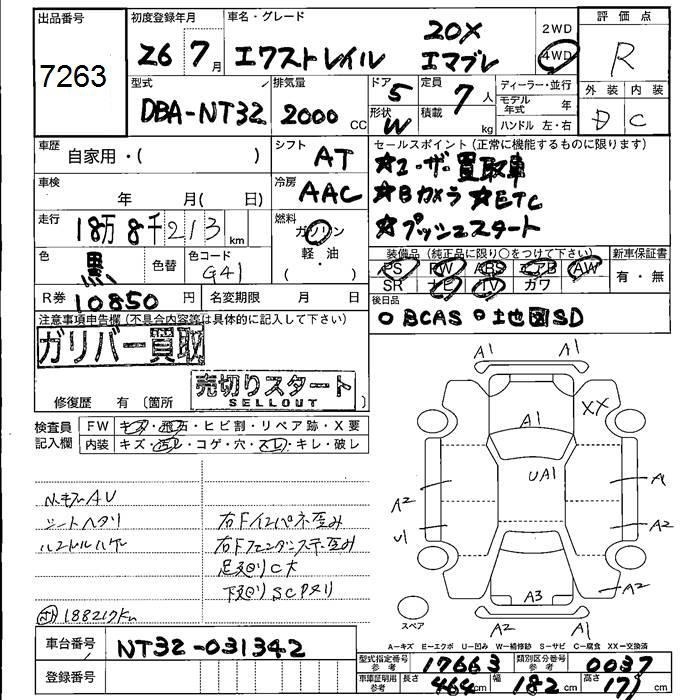 出品番号
7263
初度登録年月
26 7月
車名・グレード
エクストレイル 20X エマブレ
2WD
4WD
評価点
R
外装 内装
D C
型式
DBA-NT32
排気量
2000 CC
ドア 5
形状 W
定員 7人
積載 kg
ディーラー・並行
モデル年式 年
ハンドル 左・右
車歴
自家用・( )
シフト AT
車検
年 月( 日)
冷房 AAC
走行
18万8千213 km
燃料
ガソリン
軽・油
( ・ )
色 黒 色替
色コード G41
R券 10850 円
名変期限 月 日
セールスポイント (正常に機能するものに限ります)
☆ユ-ザー買取車
☆Bカメラ ☆ETC
☆プッシュスタート
装備品 (純正品に限り○をつけて下さい)
PS PW ABS エアB AW
SR ナビ TV カワ
新車保証書
有・無
後日品
○BCAS ○地図SD
注意事項申告欄 (不具合内容等は具体的に記入して下さい)
ガリバー買取
売切りスタート
SELLOUT
修復歴 有 (箇所 )
検査員記入欄
FW キズ・飛石・ヒビ割・リペア跡・X要
内装 キズ・汚レ・コゲ・穴・スレ・キレ・破レ
シートヘタリ
ハンドルハゲ
188219Km
右Fインパネ歪み
右Fフェンダステー歪み
足廻りC大
下廻りSCアリ
A1 A1
A1
XX
UA1
A2
U1
A1
A2
A3
A2
A2 A1
スペア
A-キズ E-エクボ U-凹み W-補修跡 S-サビ C-腐食 XX-交換済
車台番号 NT32-031342
登録番号
型式指定番号参考 17663
類別区分番号参考 0037
車庫証明用参考
長さ 464 cm
幅 182 cm
高さ 171 cm